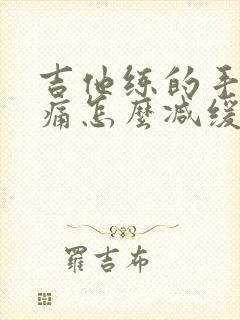 吉他练的手
痛怎麼减缓
羅吉布